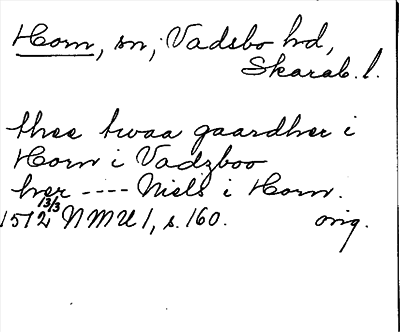 Horn, sn, Vadsbo hd,
Skarab. l.
thee twaa gaardher i
Horn i Vadzboo
her ---- Niels i Horn.
13/3
1512 NMU 1, s. 160. orig.